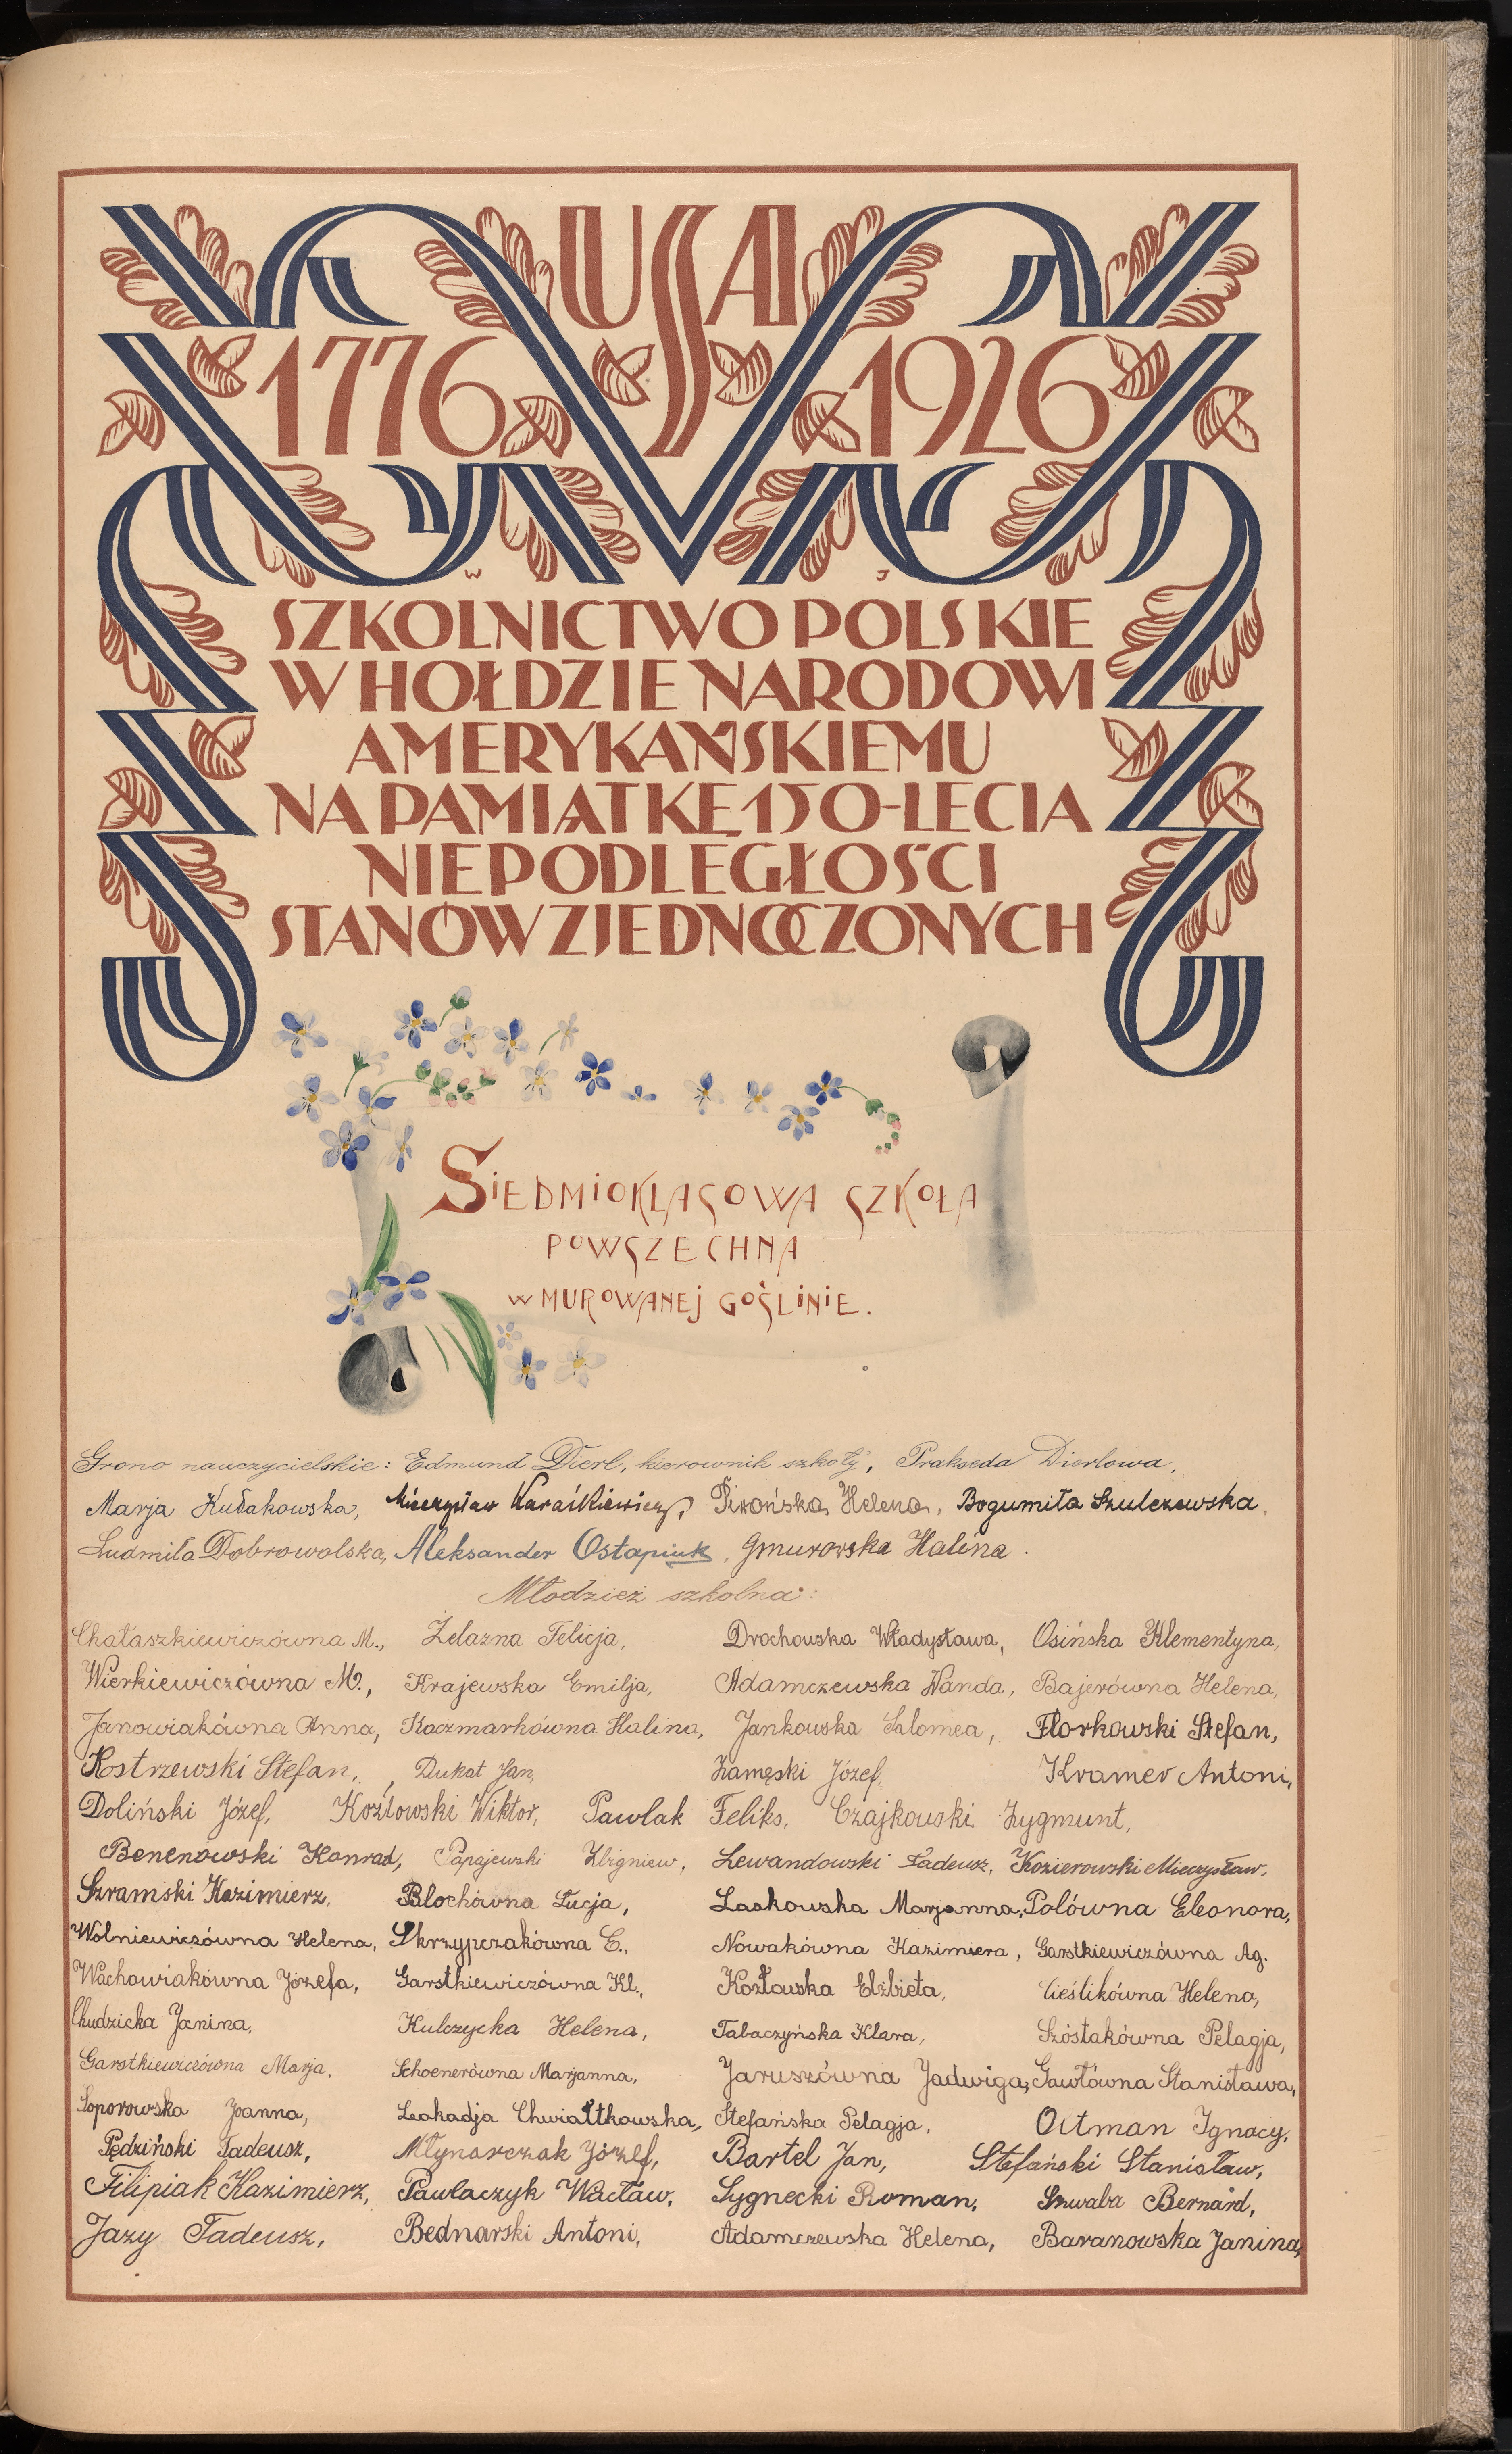 USA
1776 1926
W J
SZKOLNICTWO POLSKIE
W HOŁDZIE NARODOWI
AMERYKAŃSKIEMU
NA PAMIĄTKĘ 150-LECIA
NIEPODLEGŁOŚCI
STANÓW ZJEDNOCZONYCH
SIEDMIOKLASOWA SZKOŁA
POWSZECHNA
W MUROWANEJ GOŚLINIE.
Grono nauczycielskie: Edmund Dierl, kierownik szkoły, Prakseda Dierlowa,
Marja Kubakowska, Mieczysław Karaśkiewicz, Helena, Bogumiła Szulczewska,
Ludmiła Dobrowolska, Aleksander Ostapiuk, Gmurowska Halina.
Młodzież szkolna:
Chałaszkiewiczówna M., Żelazna Felicja, Drochowska Władysława, Osińska Klementyna,
Wierkiewiczówna M., Krajewska Emilja, Adamczewska Wanda, Bajerówna Helena,
Janowiakówna Anna, Kaczmarkówna Halina, Jankowska Salomea, Florkowski Stefan,
Kostrzewski Stefan, Dukat Jan, Zamęski Józef, Kramer Antoni,
Doliński Józef, Kozłowski Wiktor, Pawlak Feliks, Czajkowski Zygmunt,
Benenowski Konrad, Papajewski Zbigniew, Lewandowski Tadeusz, Kozierowski Mieczysław,
Szramski Kazimierz, Blochówna Łucja, Laskowska Marjanna, Polówna Eleonora,
Wolniewiczówna Helena, Skrzypczakówna C., Nowakówna Kazimiera, Garstkiewiczówna Ag.
Wachowiakówna Józefa, Garstkiewiczówna Kl., Kozłowska Elżbieta, Cieślikówna Helena,
Chudzicka Janina, Kulczycka Helena, Tabaczyńska Klara, Szóstakówna Pelagja,
Garstkiewiczówna Marja, Schoenerówna Marjanna, Jaruszówna Jadwiga, Gawłówna Stanisława,
Soporowska Joanna, Leokadja Chwiałtkowska, Stefańska Pelagja, Ortman Ignacy,
Pędziński Tadeusz, Młynarczak Józef, Bartel Jan, Stefański Stanisław,
Filipiak Kazimierz, Pawlaczyk Wacław, Sygnecki Roman, Szwaba Bernard,
Jazy Tadeusz, Bednarski Antoni, Adamczewska Helena, Baranowska Janina,